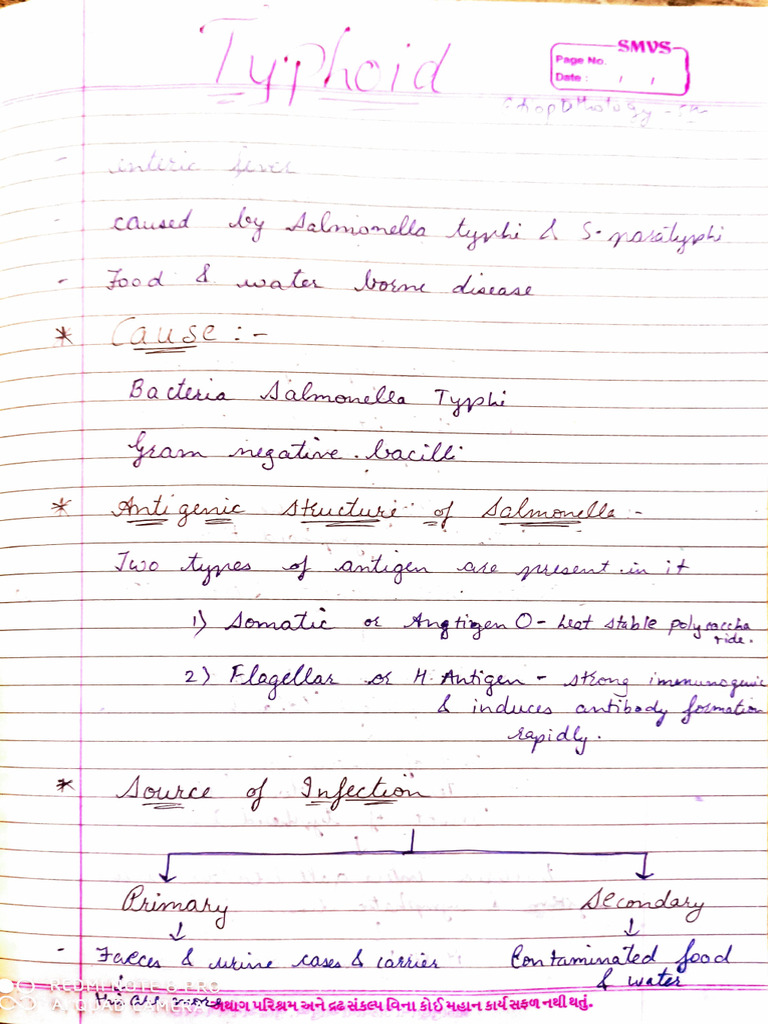 Typhoid
SMVS
Page No.
Date : / /
- enteric fever
- caused by Salmonella typhi & S. paratyphi
- Food & water borne disease
* Cause :-
Bacteria Salmonella Typhi
Gram negative bacilli
* Antigenic structure of Salmonella -
Two types of antigen are present in it
1) Somatic or Angtigen O - heat stable polysaccha
ride.
2) Flagellar or H. Antigen - strong immunogenic
& induces antibody formation
rapidly.
* Source of Infection
Primary Secondary
- Faeces & urine cases & carrier Contaminated food
& water
REDMI NOTE 8 PRO
AI QUAD CAMERA
અથાગ પરિશ્રમ અને દ્રઢ સંકલ્પ વિના કોઈ મહાન કાર્ય સફળ નથી થતું.